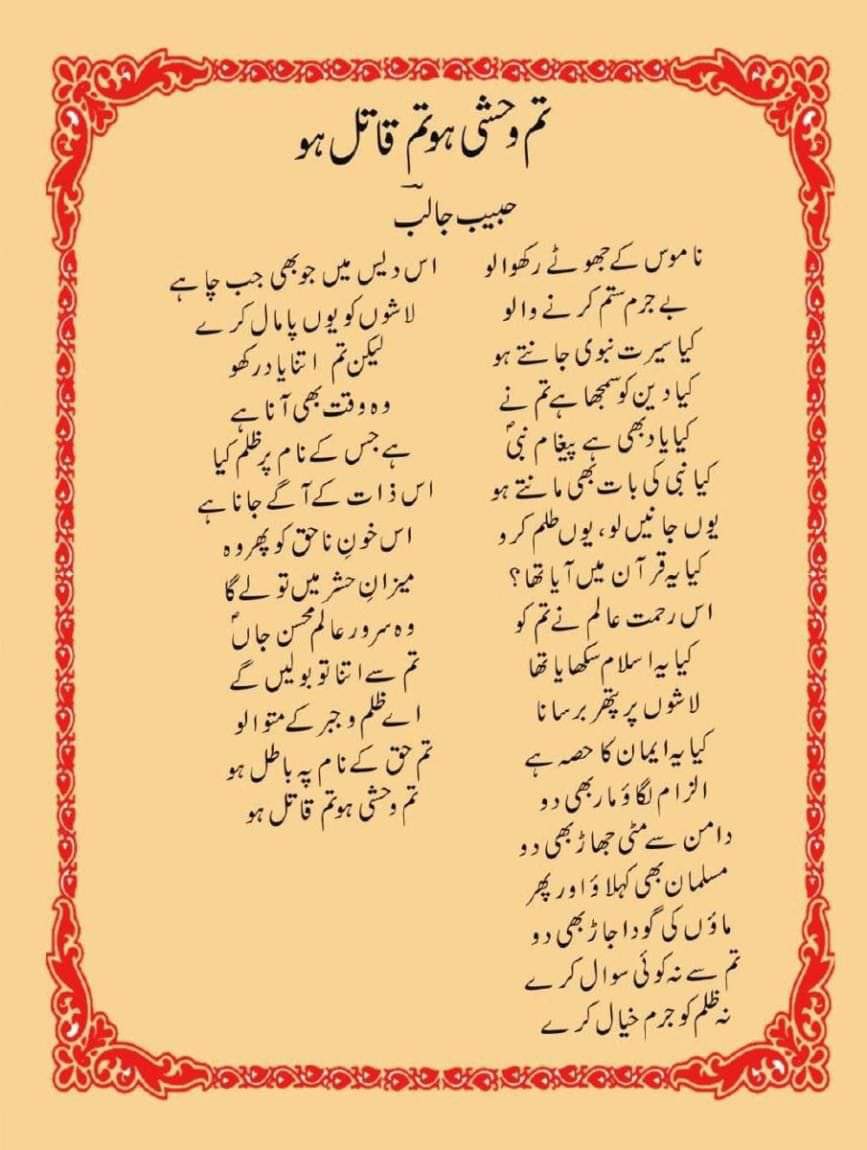 تم وحشی ہو تم قاتل ہو
حبیب جالب
ناموس کے جھوٹے رکھوالو
بے جرم ستم کرنے والو
کیا سیرت نبوی جانتے ہو
کیا دین کو سمجھا ہے تم نے
کیا یاد بھی ہے پیغام نبیؐ
کیا نبی کی بات بھی مانتے ہو
یوں جانیں لو، یوں ظلم کرو
کیا یہ قرآن میں آیا تھا؟
اس رحمت عالم نے تم کو
کیا یہ اسلام سکھایا تھا
لاشوں پر پتھر برسانا
کیا یہ ایمان کا حصہ ہے
الزام لگاؤ مار بھی دو
دامن سے مٹی جھاڑ بھی دو
مسلمان بھی کہلاؤ اور پھر
ماؤں کی گود اجاڑ بھی دو
تم سے نہ کوئی سوال کرے
نہ ظلم کو جرم خیال کرے
اس دیس میں جو بھی جب چاہے
لاشوں کو یوں پامال کرے
لیکن تم اتنا یاد رکھو
وہ وقت بھی آنا ہے
ہے جس کے نام پر ظلم کیا
اس ذات کے آگے جانا ہے
اس خونِ ناحق کو پھر وہ
میزانِ حشر میں تولے گا
وہ سرور عالم محسن جاںؐ
تم سے اتنا تو بولیں گے
اے ظلم و جبر کے متوالو
تم حق کے نام پہ باطل ہو
تم وحشی ہو تم قاتل ہو